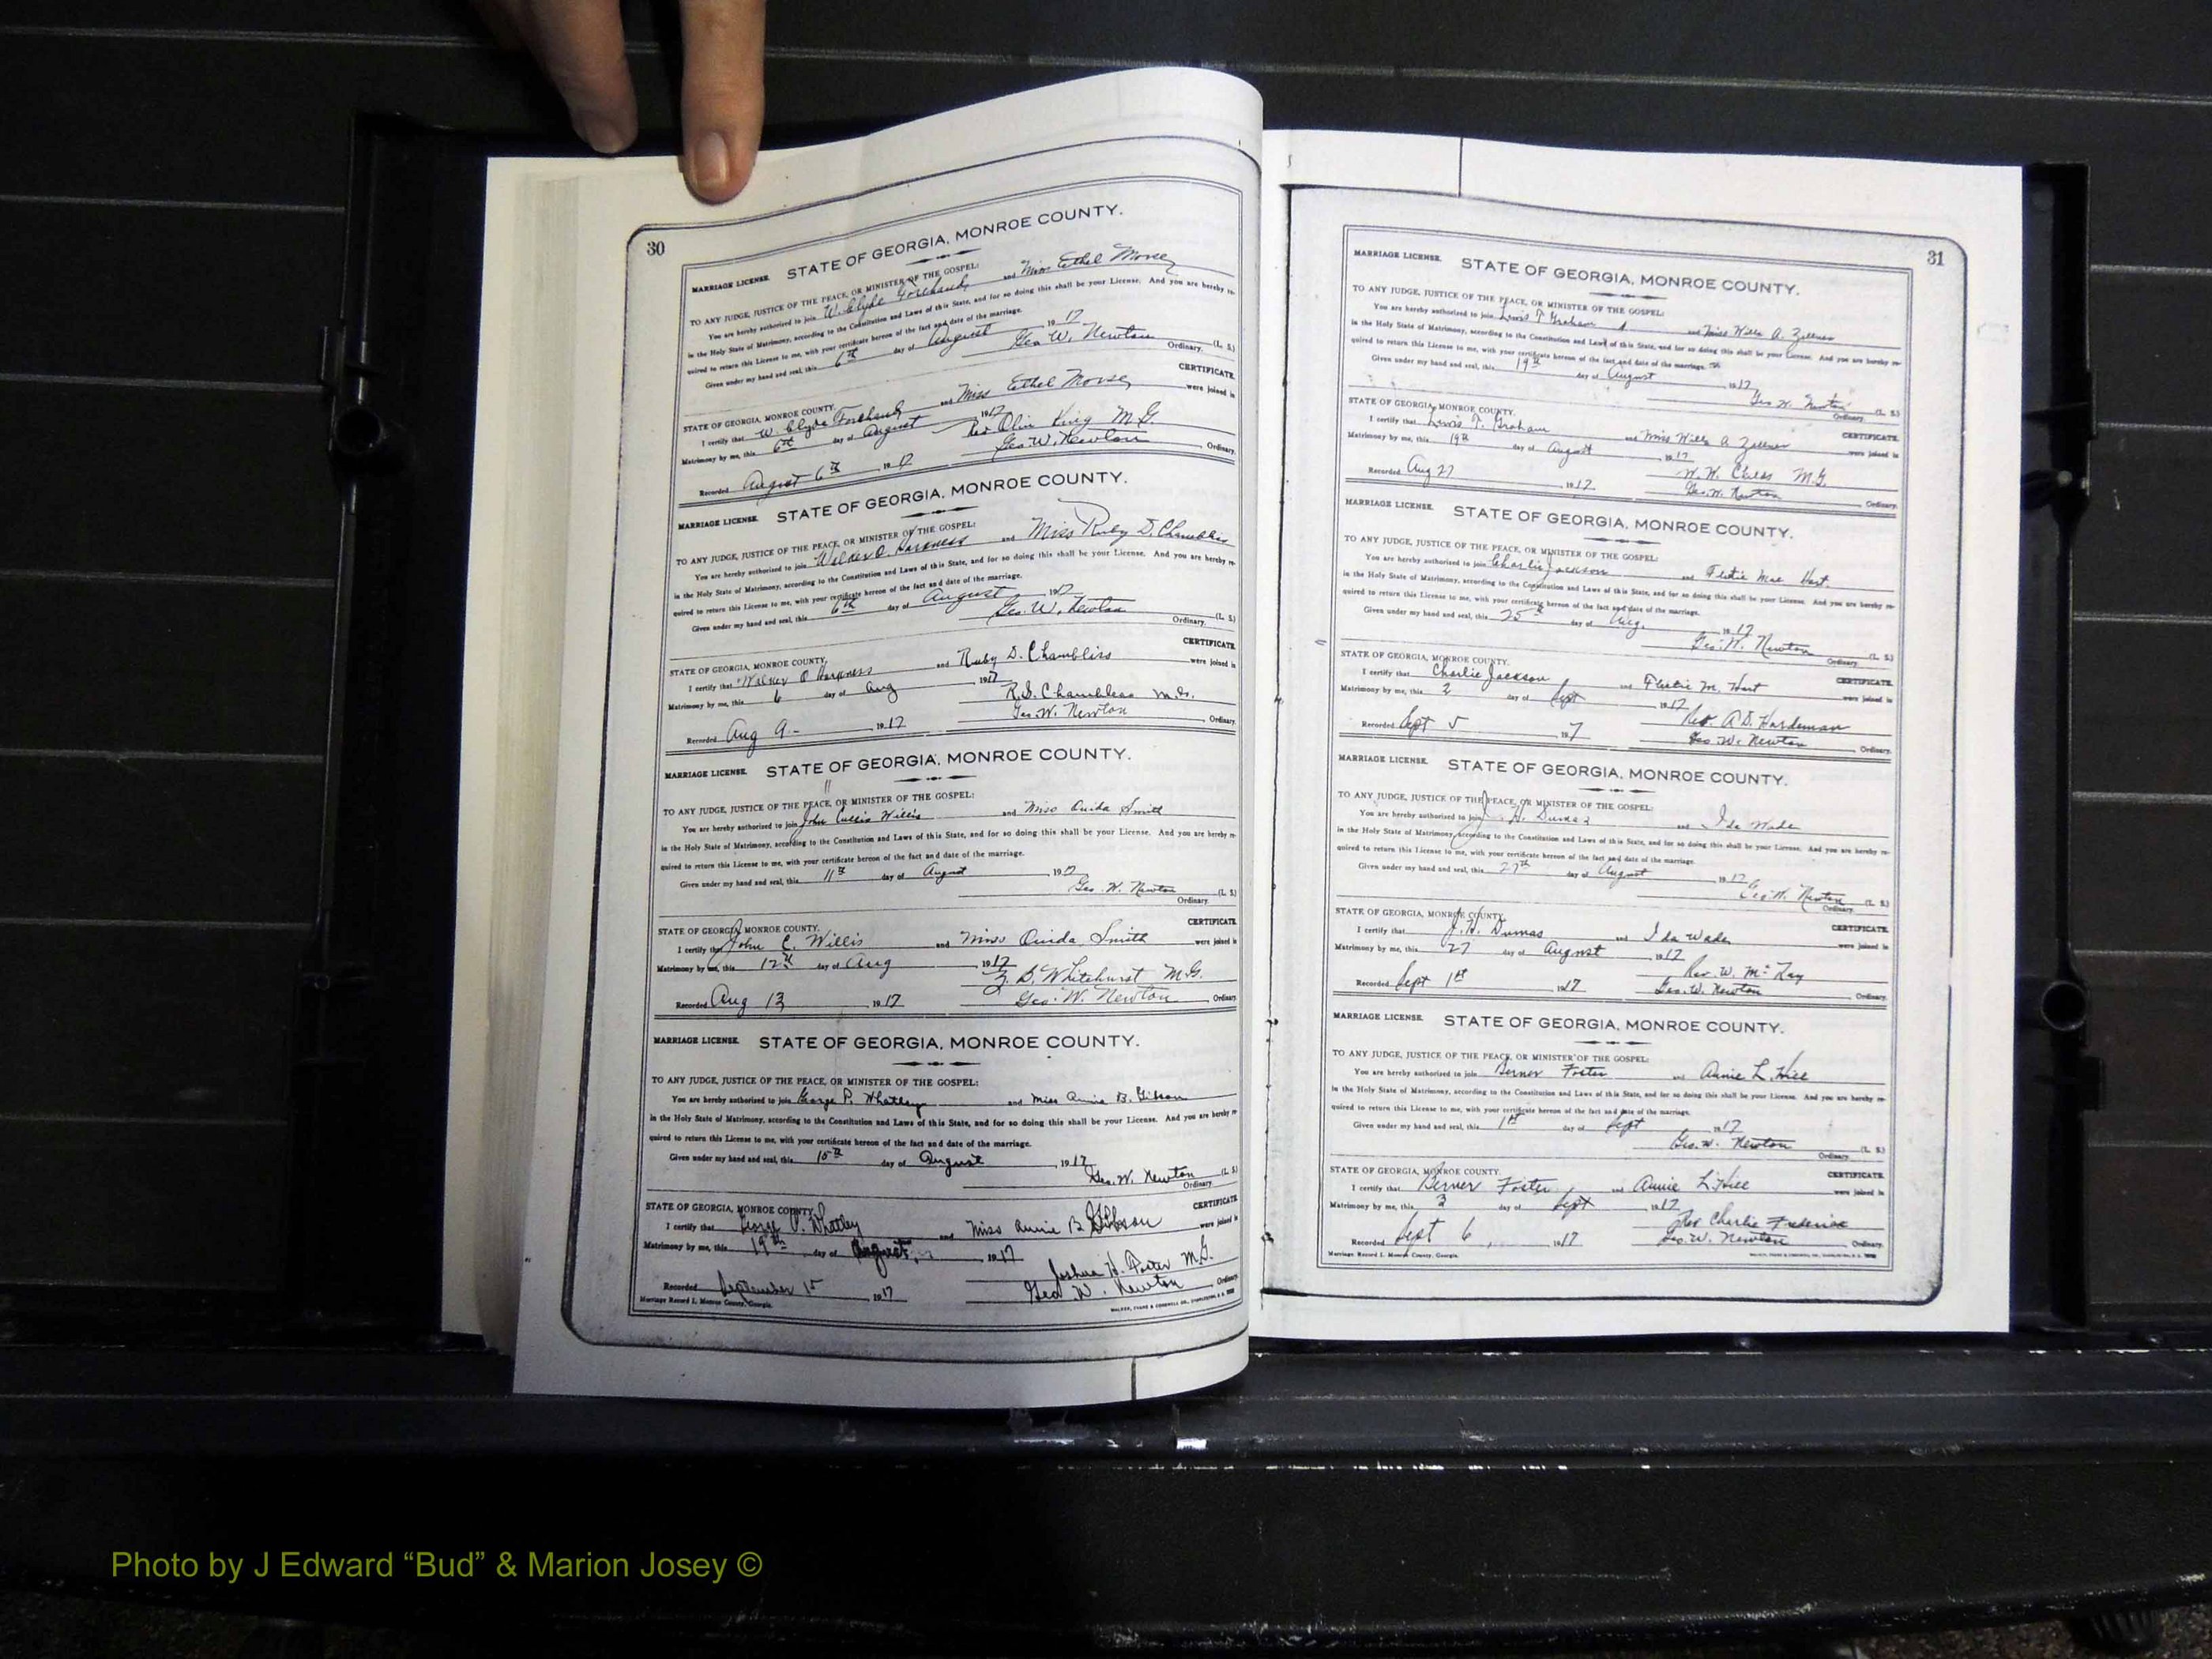 30
MARRIAGE LICENSE. STATE OF GEORGIA, MONROE COUNTY.
TO ANY JUDGE, JUSTICE OF THE PEACE, OR MINISTER OF THE GOSPEL:
You are hereby authorized to join W. Clyde Forehand and Miss Ethel Morse
in the Holy State of Matrimony, according to the Constitution and Laws of this State, and for so doing this shall be your License. And you are hereby re-
quired to return this License to me, with your certificate hereon of the fact and date of the marriage.
Given under my hand and seal, this 6th day of August 1917
Geo. W. Newton (L. S.)
Ordinary.
STATE OF GEORGIA, MONROE COUNTY. CERTIFICATE.
I certify that W. Clyde Forehand and Miss Ethel Morse were joined in
Matrimony by me, this 6th day of August 1917
Rev Olin King M.G.
Recorded August 6th 1917 Geo. W. Newton Ordinary.
MARRIAGE LICENSE. STATE OF GEORGIA, MONROE COUNTY.
TO ANY JUDGE, JUSTICE OF THE PEACE, OR MINISTER OF THE GOSPEL:
You are hereby authorized to join O. Harkness and Miss Ruby D. Chambliss
in the Holy State of Matrimony, according to the Constitution and Laws of this State, and for so doing this shall be your License. And you are hereby re-
quired to return this License to me, with your certificate hereon of the fact and date of the marriage.
Given under my hand and seal, this 6th day of August 1917
Geo. W. Newton (L. S.)
Ordinary.
STATE OF GEORGIA, MONROE COUNTY. CERTIFICATE.
I certify that O Harkness and Ruby D. Chambliss were joined in
Matrimony by me, this 6 day of Aug 1917
R.S. Chambless M.G.
Recorded Aug 9- 1917 Geo. W. Newton Ordinary.
MARRIAGE LICENSE. STATE OF GEORGIA, MONROE COUNTY.
TO ANY JUDGE, JUSTICE OF THE PEACE, OR MINISTER OF THE GOSPEL:
You are hereby authorized to join John Willis and Miss Ouida Smith
in the Holy State of Matrimony, according to the Constitution and Laws of this State, and for so doing this shall be your License. And you are hereby re-
quired to return this License to me, with your certificate hereon of the fact and date of the marriage.
Given under my hand and seal, this 11th day of August 1917
Geo. W. Newton (L. S.)
Ordinary.
STATE OF GEORGIA, MONROE COUNTY. CERTIFICATE.
I certify that John C. Willis and Miss Ouida Smith were joined in
Matrimony by me, this 12th day of Aug 1917
D. Whitehurst M.G.
Recorded Aug 13 1917 Geo. W. Newton Ordinary.
MARRIAGE LICENSE. STATE OF GEORGIA, MONROE COUNTY.
TO ANY JUDGE, JUSTICE OF THE PEACE, OR MINISTER OF THE GOSPEL:
You are hereby authorized to join George P. Whatley and Miss Annie B. Gibson
in the Holy State of Matrimony, according to the Constitution and Laws of this State, and for so doing this shall be your License. And you are hereby re-
quired to return this License to me, with your certificate hereon of the fact and date of the marriage.
Given under my hand and seal, this 15th day of August, 1917
Geo. W. Newton (L. S.)
Ordinary.
STATE OF GEORGIA, MONROE COUNTY. CERTIFICATE.
I certify that George P. Whatley and Miss Annie B Gibson were joined in
Matrimony by me, this 19th day of August, 1917
Joshua H. Porter M.G.
Recorded September 15 1917 Geo W. Newton Ordinary.
Marriage Record I. Monroe County, Georgia.
31
MARRIAGE LICENSE. STATE OF GEORGIA, MONROE COUNTY.
TO ANY JUDGE, JUSTICE OF THE PEACE, OR MINISTER OF THE GOSPEL:
You are hereby authorized to join Lewis T Graham and Miss Willa A. Zellner
in the Holy State of Matrimony, according to the Constitution and Laws of this State, and for so doing this shall be your License. And you are hereby re-
quired to return this License to me, with your certificate hereon of the fact and date of the marriage.
Given under my hand and seal, this 19th day of August 1917
Geo W. Newton (L. S.)
Ordinary.
STATE OF GEORGIA, MONROE COUNTY. CERTIFICATE.
I certify that Lewis T. Graham and Miss Willa A Zellner were joined in
Matrimony by me, this 19th day of August 1917
W. W. Childs M.G.
Recorded Aug 27 1917 Geo. W. Newton Ordinary.
MARRIAGE LICENSE. STATE OF GEORGIA, MONROE COUNTY.
TO ANY JUDGE, JUSTICE OF THE PEACE, OR MINISTER OF THE GOSPEL:
You are hereby authorized to join Charlie Jackson and Mae Hart
in the Holy State of Matrimony, according to the Constitution and Laws of this State, and for so doing this shall be your License. And you are hereby re-
quired to return this License to me, with your certificate hereon of the fact and date of the marriage.
Given under my hand and seal, this 25th day of Aug. 1917
Geo. W. Newton (L. S.)
Ordinary.
STATE OF GEORGIA, MONROE COUNTY. CERTIFICATE.
I certify that Charlie Jackson and M. Hart were joined in
Matrimony by me, this 2 day of Sept 1917
Rev. A D. Hardeman
Recorded Sept 5 197 Geo. W. Newton Ordinary.
MARRIAGE LICENSE. STATE OF GEORGIA, MONROE COUNTY.
TO ANY JUDGE, JUSTICE OF THE PEACE, OR MINISTER OF THE GOSPEL:
You are hereby authorized to join J. H. Dumas and Ida Wade
in the Holy State of Matrimony, according to the Constitution and Laws of this State, and for so doing this shall be your License. And you are hereby re-
quired to return this License to me, with your certificate hereon of the fact and date of the marriage.
Given under my hand and seal, this 27th day of August 1917
Geo. W. Newton (L. S.)
Ordinary.
STATE OF GEORGIA, MONROE COUNTY. CERTIFICATE.
I certify that J. H. Dumas and Ida Wade were joined in
Matrimony by me, this 27 day of August 1917
Rev. W. McKay
Recorded Sept 1st 1917 Geo. W. Newton Ordinary.
MARRIAGE LICENSE. STATE OF GEORGIA, MONROE COUNTY.
TO ANY JUDGE, JUSTICE OF THE PEACE, OR MINISTER OF THE GOSPEL:
You are hereby authorized to join Berner Foster and Annie L. Hill
in the Holy State of Matrimony, according to the Constitution and Laws of this State, and for so doing this shall be your License. And you are hereby re-
quired to return this License to me, with your certificate hereon of the fact and date of the marriage.
Given under my hand and seal, this 1st day of Sept 1917
Geo. W. Newton (L. S.)
Ordinary.
STATE OF GEORGIA, MONROE COUNTY. CERTIFICATE.
I certify that Berner Foster and Annie L. Hill were joined in
Matrimony by me, this 2 day of Sept 1917
Rev Charlie Frederick
Recorded Sept 6, 1917 Geo. W. Newton Ordinary.
Marriage Record I. Monroe County, Georgia.
Photo by J Edward “Bud” & Marion Josey ©